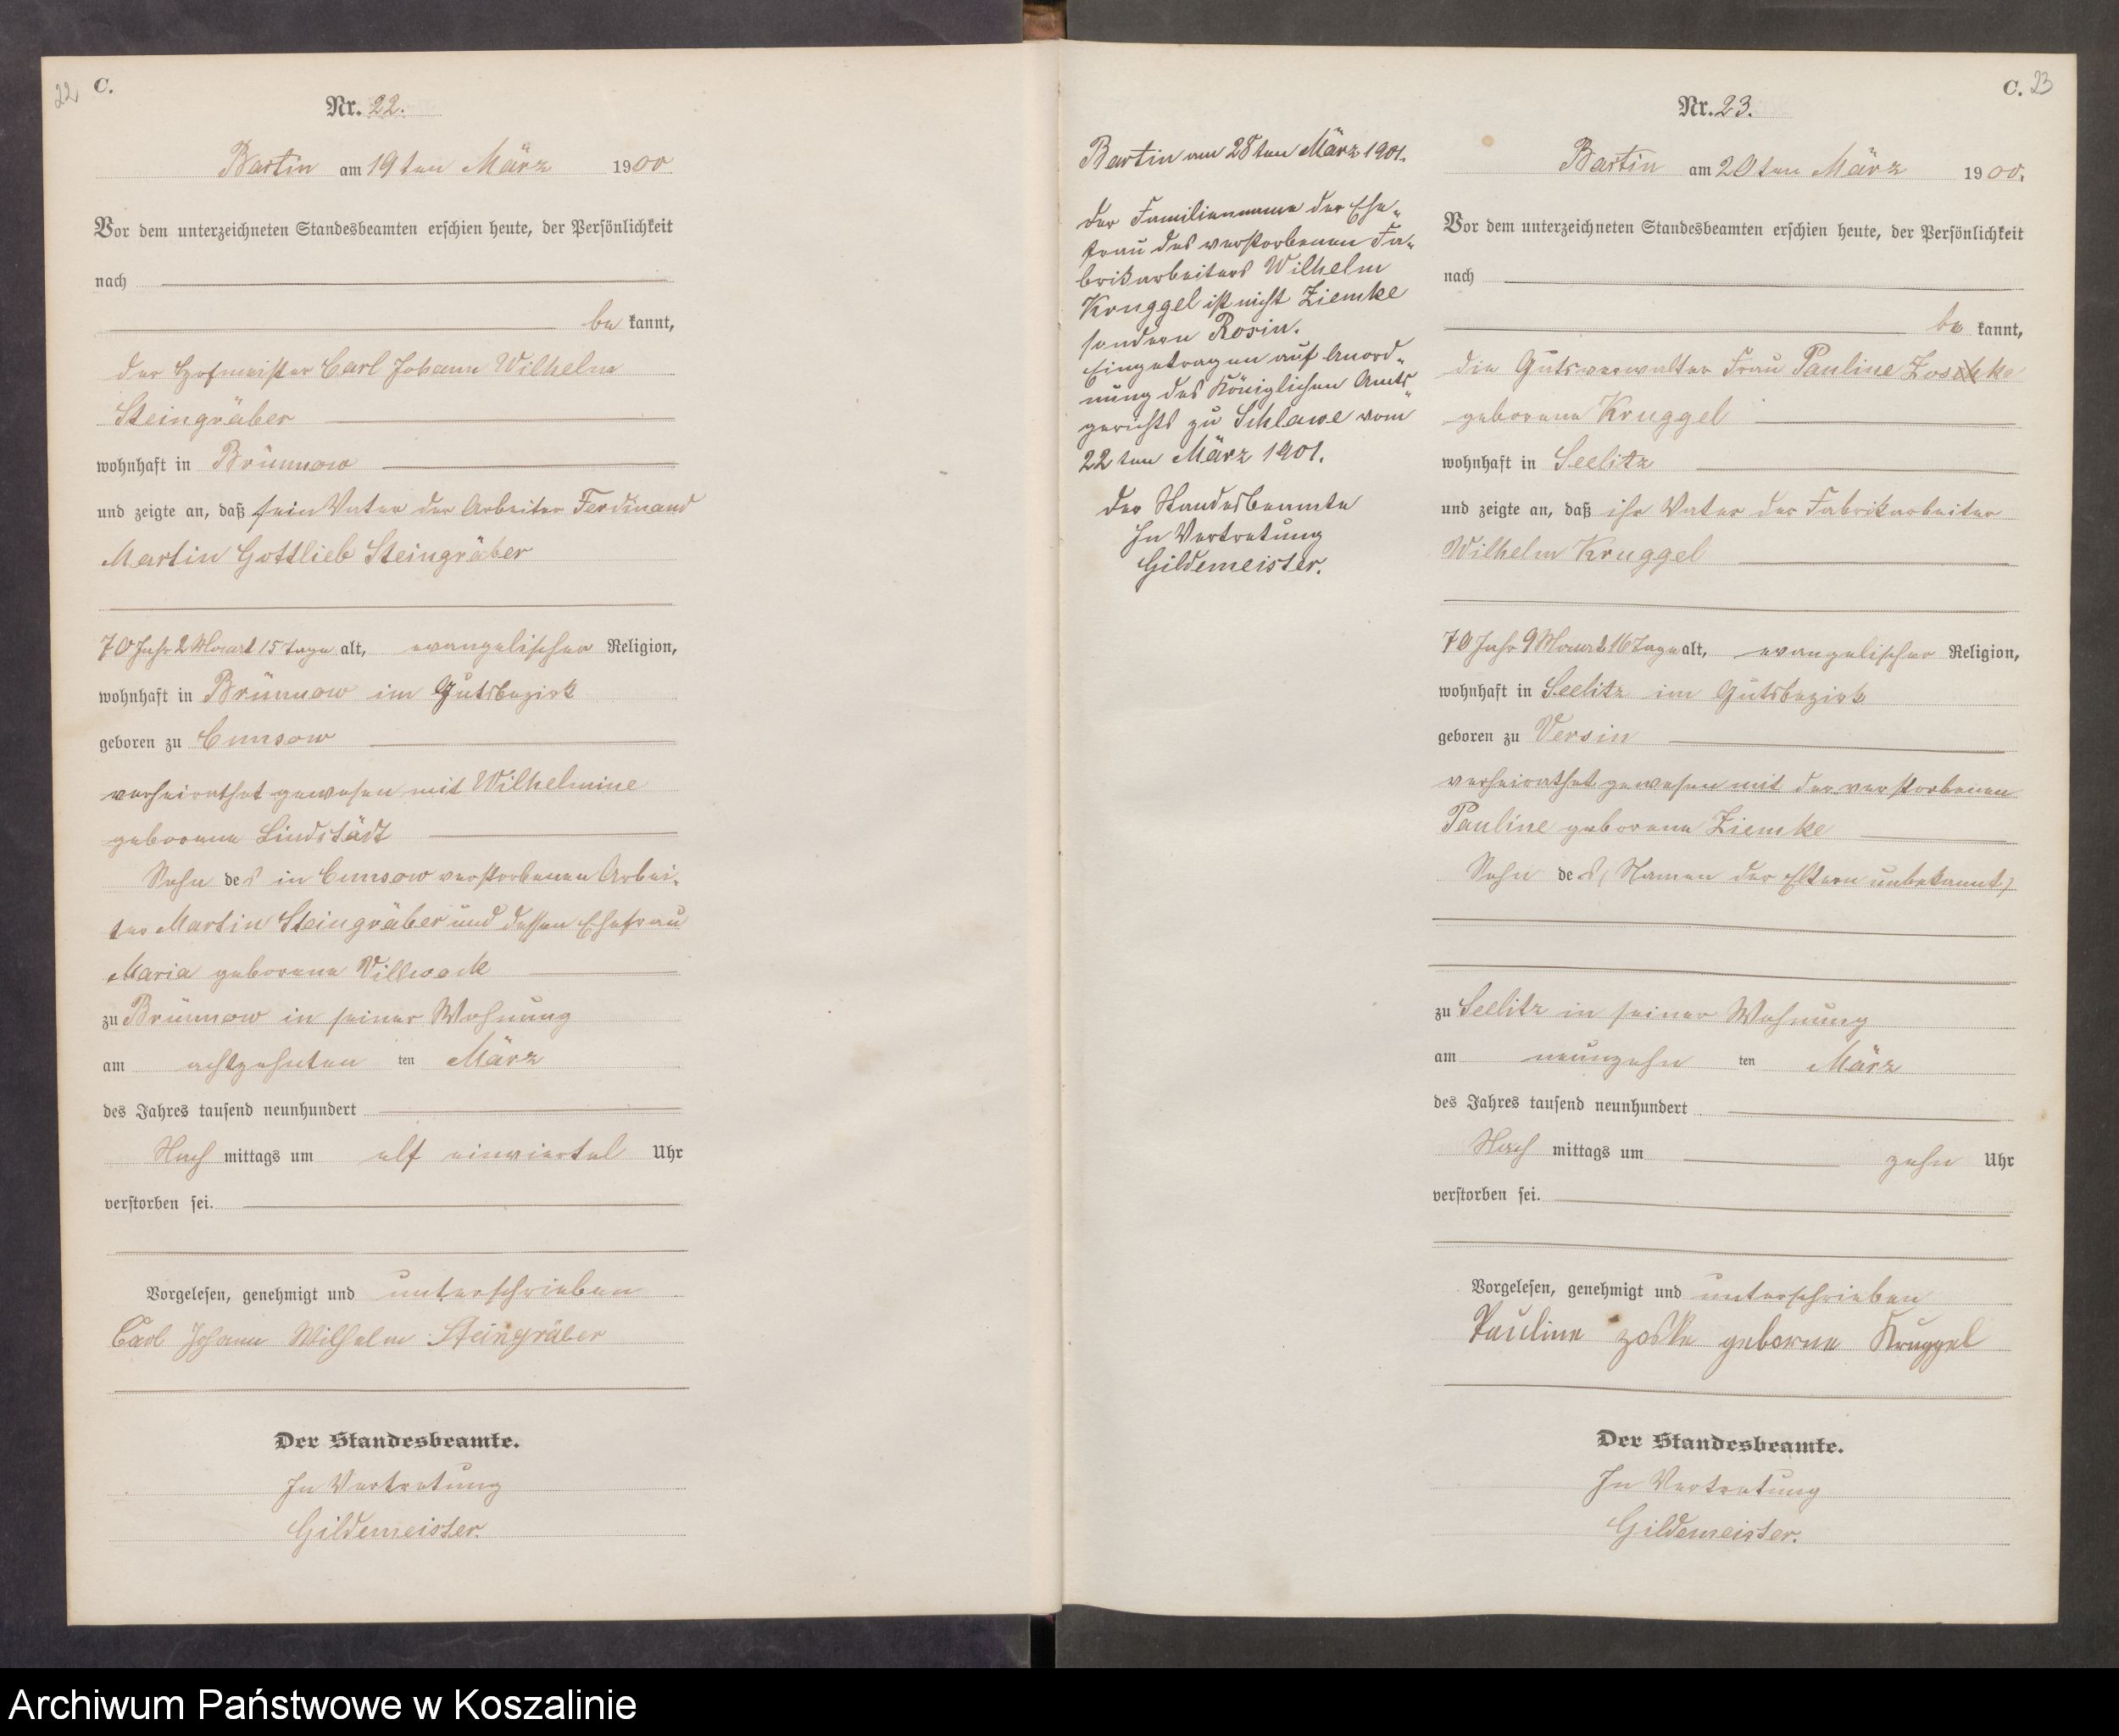 22
C.
Nr. 22.
Bartin am 19ten März 1900
Vor dem unterzeichneten Standesbeamten erschien heute, der Persönlichkeit
nach
be kannt,
der Hofmeister Carl Johann Wilhelm
Steingräber
wohnhaft in Brünnow
und zeigte an, daß sein Vater der Arbeiter Ferdinand
Martin Gottlieb Steingräber
70 Jahr 2 Monat 15 Tage alt, evangelischer Religion,
wohnhaft in Brünnow im Gutsbezirk
geboren zu Cunsow
verheirathet gewesen mit Wilhelmine
geborene Lindstädt
Sohn des in Cunsow verstorbenen Arbei-
ter Martin Steingräber und dessen Ehefrau
Maria geborene Villwock
zu Brünnow in seiner Wohnung
am achtzehnten ten März
des Jahres tausend neunhundert
Nach mittags um elf einviertel Uhr
verstorben sei.
Vorgelesen, genehmigt und unterschrieben
Carl Johann Wilhelm Steingräber
Der Standesbeamte.
In Vertretung
Gildemeister.
Bartin am 28ten März 1901.
Der Familienname der Ehe-
frau des verstorbenen Fa-
brikarbeiters Wilhelm
Kruggel ist nicht Ziemke
sondern Rosin.
Eingetragen auf Anord-
nung des Königlichen Amts-
gerichts zu Schlawe vom
22ten März 1901.
Der Standesbeamte
In Vertretung
Gildemeister.
C. 23
Nr. 23.
Bartin am 20ten März 1900.
Vor dem unterzeichneten Standesbeamten erschien heute, der Persönlichkeit
nach
be kannt,
die Gutsverwalter Frau Pauline Zoschke
geborene Kruggel
wohnhaft in Seelitz
und zeigte an, daß ihr Vater der Fabrikarbeiter
Wilhelm Kruggel
70 Jahr 9 Monat 16 Tage alt, evangelischer Religion,
wohnhaft in Seelitz im Gutsbezirk
geboren zu Versin
verheirathet gewesen mit der verstorbenen
Pauline geborene Ziemke
Sohn des (Namen der Eltern unbekannt)
zu Seelitz in seiner Wohnung
am neunzehn ten März
des Jahres tausend neunhundert
Nach mittags um zehn Uhr
verstorben sei.
Vorgelesen, genehmigt und unterschrieben
Pauline Zoske geborne Kruggel
Der Standesbeamte.
In Vertretung
Gildemeister.
Archiwum Państwowe w Koszalinie